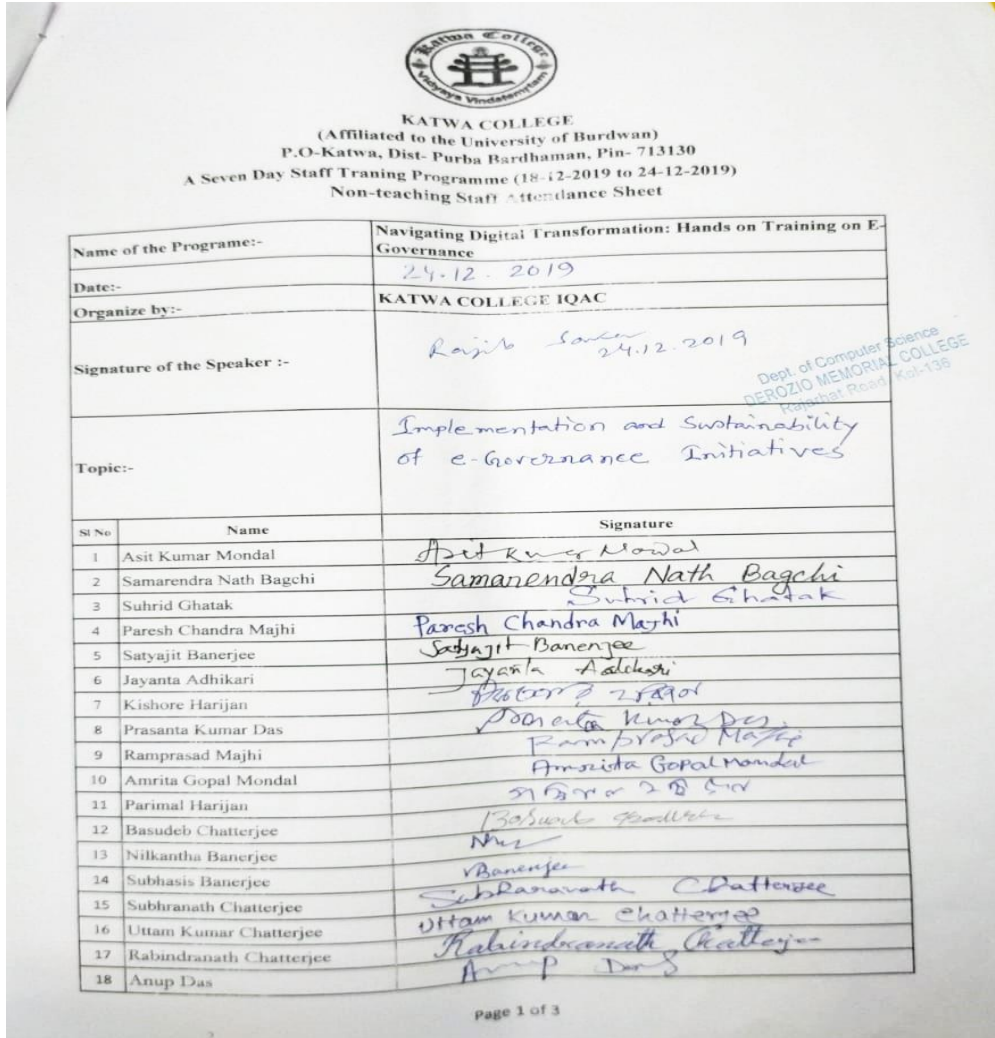 Katwa College
Vidyaya Vindatemrtam
KATWA COLLEGE
(Affiliated to the University of Burdwan)
P.O-Katwa, Dist- Purba Bardhaman, Pin- 713130
A Seven Day Staff Traning Programme (18-12-2019 to 24-12-2019)
Non-teaching Staff Attendance Sheet
Name of the Programe:- Navigating Digital Transformation: Hands on Training on E-
Governance
Date:- 24.12.2019
Organize by:- KATWA COLLEGE IQAC
Signature of the Speaker :- Rajib Sarkar
24.12.2019
Dept. of Computer Science
DEROZIO MEMORIAL COLLEGE
Rajarhat Road, Kol-136
Topic:- Implementation and Sustainability
of e-Governance Initiatives
Sl No Name Signature
1 Asit Kumar Mondal Asit
2 Samarendra Nath Bagchi Samarendra Nath Bagchi
3 Suhrid Ghatak Suhrid Ghatak
4 Paresh Chandra Majhi Paresh Chandra Majhi
5 Satyajit Banerjee Satyajit Banerjee
6 Jayanta Adhikari Jayanta
7 Kishore Harijan
8 Prasanta Kumar Das Kumar Das
9 Ramprasad Majhi Ramprasad Majhi
10 Amrita Gopal Mondal Amrita Gopal Mondal
11 Parimal Harijan
12 Basudeb Chatterjee
13 Nilkantha Banerjee
14 Subhasis Banerjee Banerjee
15 Subhranath Chatterjee Subhranath Chatterjee
16 Uttam Kumar Chatterjee Uttam Kumar Chatterjee
17 Rabindranath Chatterjee Rabindranath Chatterjee
18 Anup Das Anup Das
Page 1 of 3